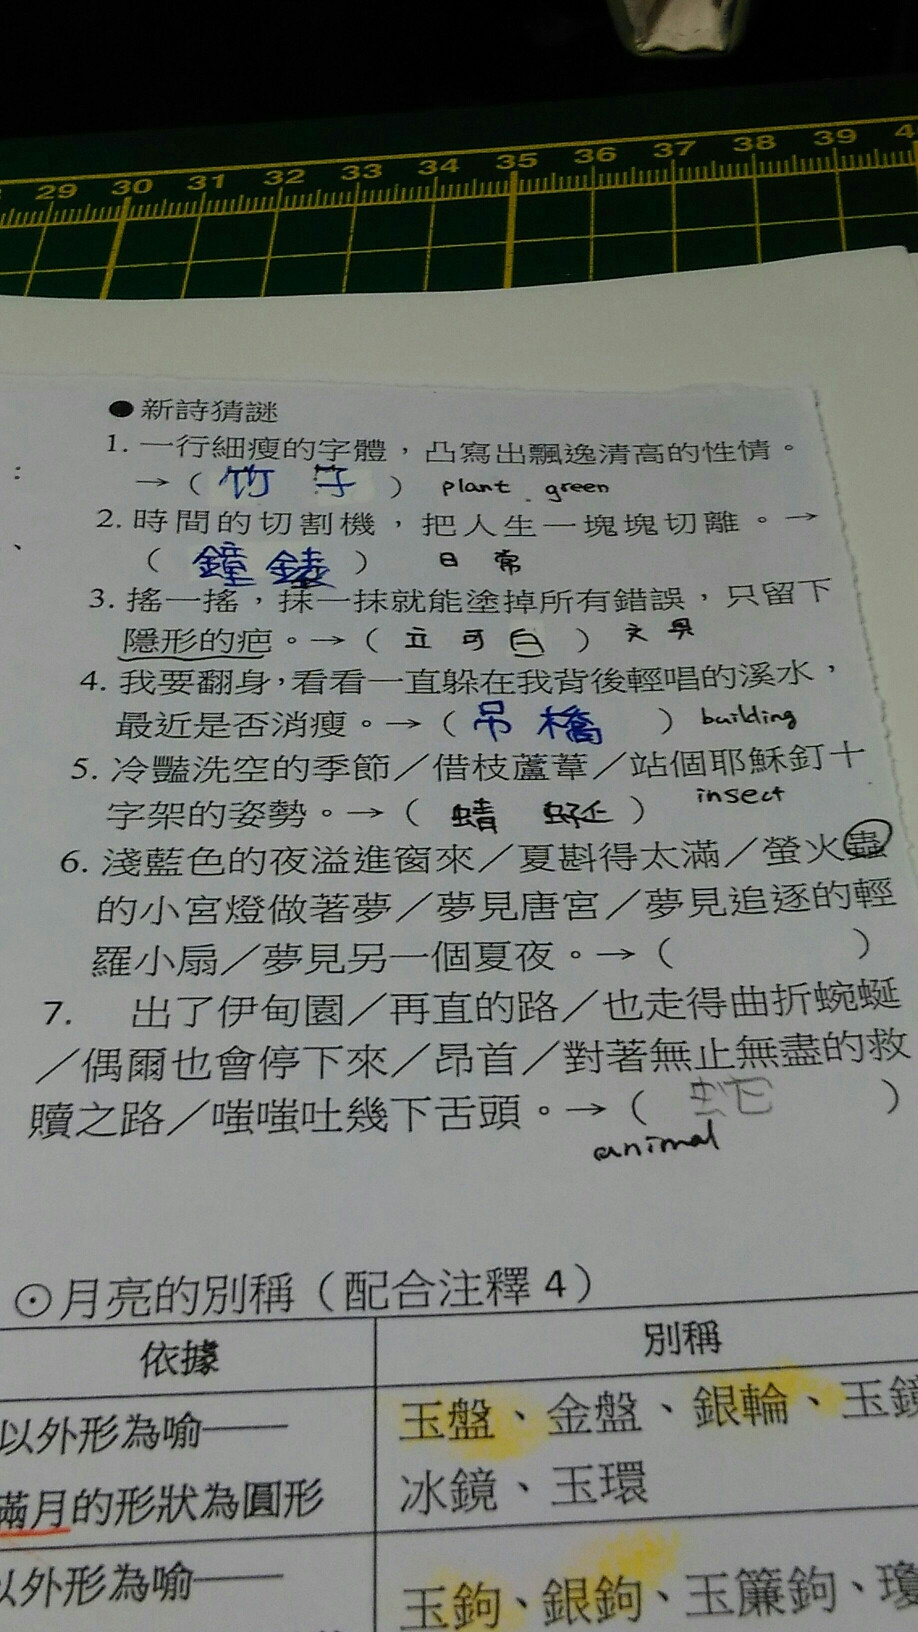 29 30 31 32 33 34 35 36 37 38 39
●新詩猜謎
1. 一行細瘦的字體，凸寫出飄逸清高的性情。
→（竹子） plant green
2. 時間的切割機，把人生一塊塊切離。→
（鐘錶） 日常
3. 搖一搖，抹一抹就能塗掉所有錯誤，只留下
隱形的疤。→（立可白） 文具
4. 我要翻身，看看一直躲在我背後輕唱的溪水，
最近是否消瘦。→（吊橋） building
5. 冷豔洗空的季節／借枝蘆葦／站個耶穌釘十
字架的姿勢。→（蜻蜓） insect
6. 淺藍色的夜溢進窗來／夏斟得太滿／螢火蟲
的小宮燈做著夢／夢見唐宮／夢見追逐的輕
羅小扇／夢見另一個夏夜。→（ ）
7. 出了伊甸園／再直的路／也走得曲折蜿蜒
／偶爾也會停下來／昂首／對著無止無盡的救
贖之路／嗤嗤吐幾下舌頭。→（蛇）
animal
⊙月亮的別稱（配合注釋4）
依據 別稱
以外形為喻── 玉盤、金盤、銀輪、玉鏡
滿月的形狀為圓形 冰鏡、玉環
以外形為喻── 玉鉤、銀鉤、玉簾鉤、瓊